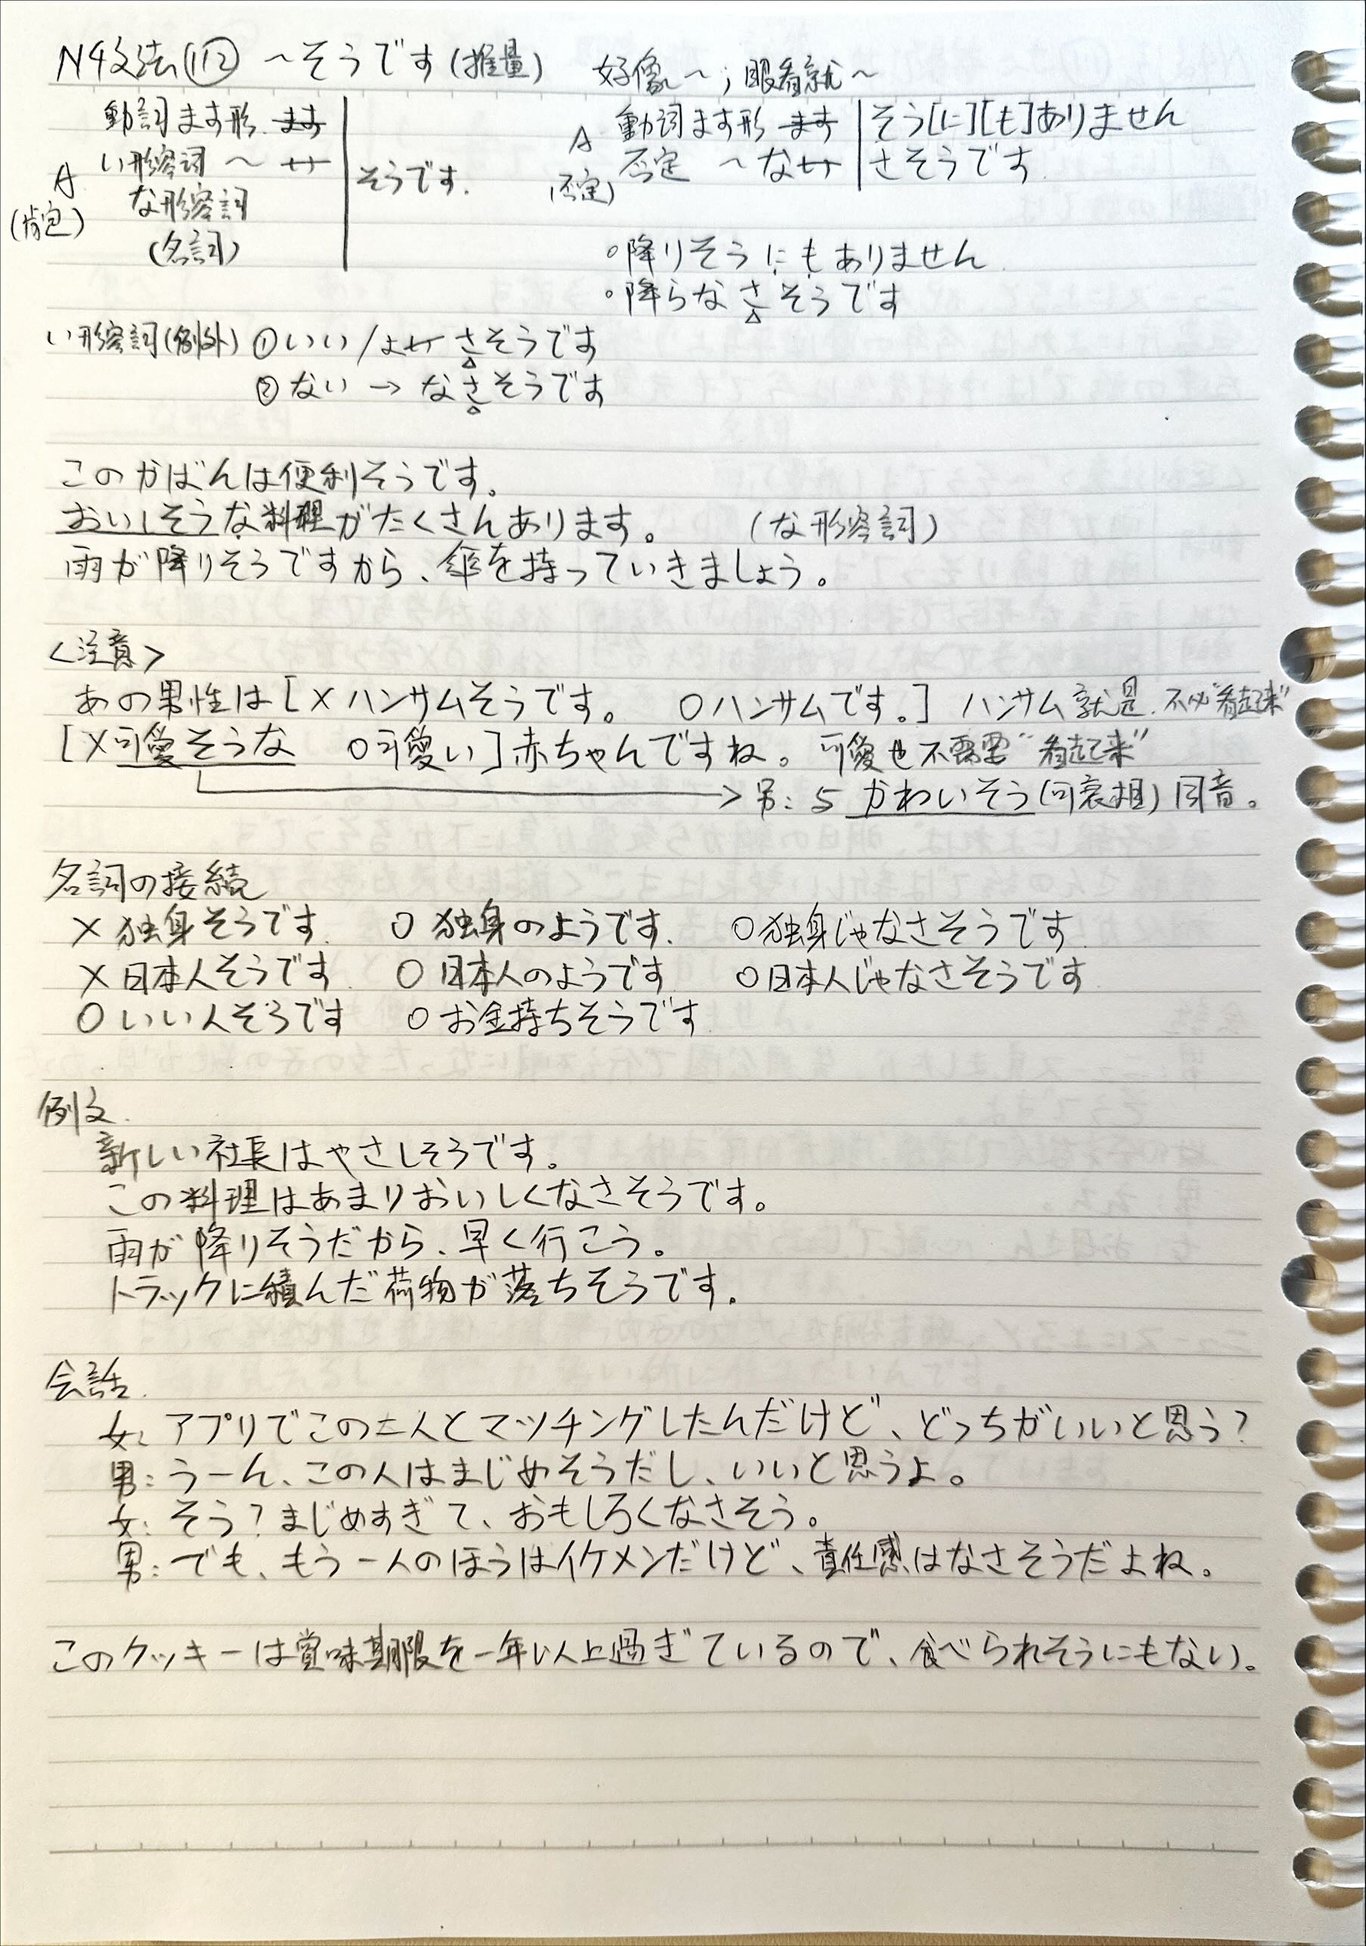 N4文法(112) ～そうです(推量) 好像～；眼看就～
動詞ます形 ます
い形容詞 ～ い
な形容詞
(名詞)
A
(肯定)
そうです.
A
(否定)
動詞ます形 ます そう[に][も]ありません
否定 ～ない さそうです
。降りそうにもありません
。降らなさそうです
い形容詞(例外) ①いい/よい さそうです
②ない → なさそうです
このかばんは便利そうです。
おいしそうな料理がたくさんあります。 (な形容詞)
雨が降りそうですから、傘を持っていきましょう。
<注意>
あの男性は[×ハンサムそうです。 ○ハンサムです。] ハンサム就是.不必"看起来"
[×可愛そうな ○可愛い]赤ちゃんですね。可愛也不需要"看起来"
→另:与かわいそう(可哀相)同音。
名詞の接続
×独身そうです. ○独身のようです. ○独身じゃなさそうです.
×日本人そうです. ○日本人のようです ○日本人じゃなさそうです.
○いい人そうです ○お金持ちそうです.
例文.
新しい社長はやさしそうです。
この料理はあまりおいしくなさそうです。
雨が降りそうだから、早く行こう。
トラックに積んだ荷物が落ちそうです.
会話.
女:アプリでこの二人とマッチングしたんだけど、どっちがいいと思う?
男:うーん、この人はまじめそうだし、いいと思うよ。
女:そう?まじめすぎて、おもしろくなさそう。
男:でも、もう一人のほうはイケメンだけど、責任感はなさそうだよね。
このクッキーは賞味期限を一年以上過ぎているので、食べられそうにもない。